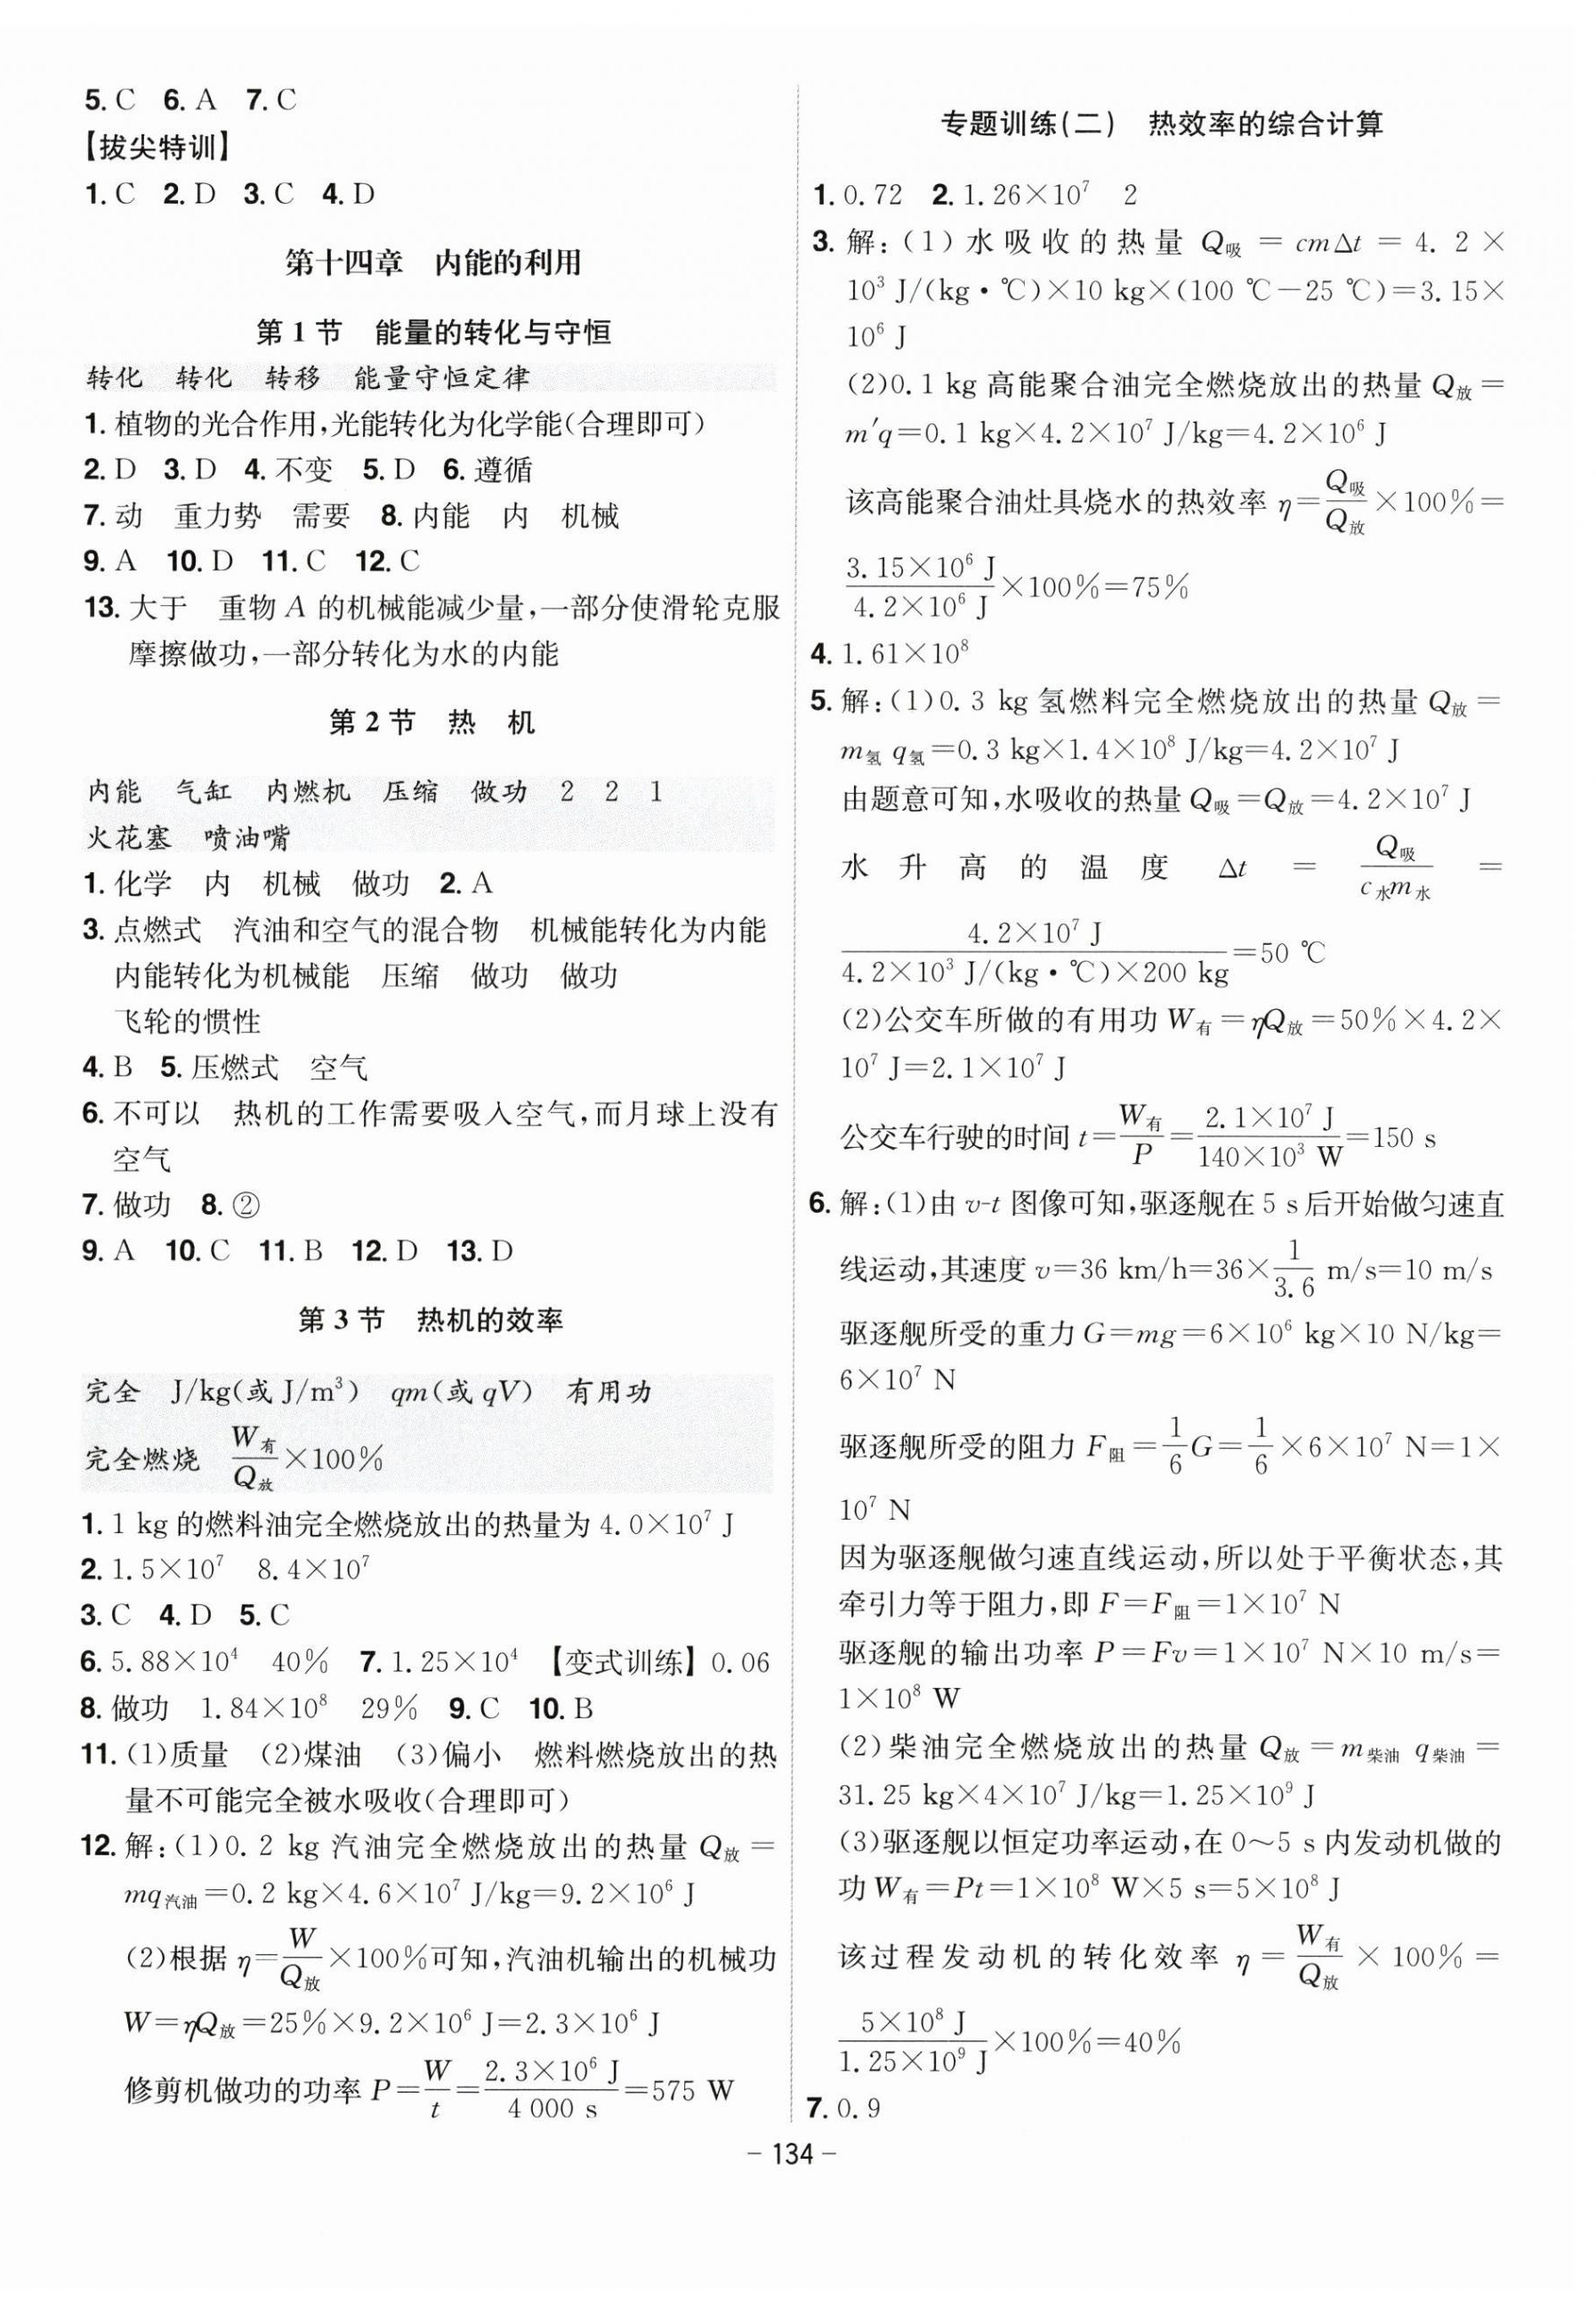 5. C  6. A  7. C
【拔尖特训】
1. C  2. D  3. C  4. D
第十四章　内能的利用
第 1 节　能量的转化与守恒
转化　转化　转移　能量守恒定律
1. 植物的光合作用,光能转化为化学能(合理即可)
2. D  3. D  4. 不变  5. D  6. 遵循
7. 动　重力势　需要  8. 内能　内　机械
9. A  10. D  11. C  12. C
13. 大于　重物 A 的机械能减少量,一部分使滑轮克服
摩擦做功,一部分转化为水的内能
第 2 节　热　机
内能　气缸　内燃机　压缩　做功　2　2　1
火花塞　喷油嘴
1. 化学　内　机械　做功  2. A
3. 点燃式　汽油和空气的混合物　机械能转化为内能
内能转化为机械能　压缩　做功　做功
飞轮的惯性
4. B  5. 压燃式　空气
6. 不可以　热机的工作需要吸入空气,而月球上没有
空气
7. 做功  8. ②
9. A  10. C  11. B  12. D  13. D
第 3 节　热机的效率
完全　J/kg(或 J/m³)　qm(或 qV)　有用功
完全燃烧　W有/Q放×100%
1. 1 kg 的燃料油完全燃烧放出的热量为 4.0×10⁷ J
2. 1.5×10⁷　8.4×10⁷
3. C  4. D  5. C
6. 5.88×10⁴　40%  7. 1.25×10⁴ 【变式训练】0.06
8. 做功　1.84×10⁸　29%  9. C  10. B
11. (1)质量　(2)煤油　(3)偏小　燃料燃烧放出的热
量不可能完全被水吸收(合理即可)
12. 解:(1)0.2 kg 汽油完全燃烧放出的热量 Q放=
mq汽油=0.2 kg×4.6×10⁷ J/kg=9.2×10⁶ J
(2)根据 η=W/Q放×100%可知,汽油机输出的机械功
W=ηQ放=25%×9.2×10⁶ J=2.3×10⁶ J
修剪机做功的功率 P=W/t=2.3×10⁶ J/4 000 s=575 W
专题训练(二)　热效率的综合计算
1. 0.72  2. 1.26×10⁷　2
3. 解:(1)水吸收的热量 Q吸=cmΔt=4.2×
10³ J/(kg·℃)×10 kg×(100 ℃－25 ℃)=3.15×
10⁶ J
(2)0.1 kg 高能聚合油完全燃烧放出的热量 Q放=
m′q=0.1 kg×4.2×10⁷ J/kg=4.2×10⁶ J
该高能聚合油灶具烧水的热效率 η=Q吸/Q放×100%=
3.15×10⁶ J/4.2×10⁶ J×100%=75%
4. 1.61×10⁸
5. 解:(1)0.3 kg 氢燃料完全燃烧放出的热量 Q放=
m氢 q氢=0.3 kg×1.4×10⁸ J/kg=4.2×10⁷ J
由题意可知,水吸收的热量 Q吸=Q放=4.2×10⁷ J
水升高的温度 Δt = Q吸/c水m水 =
4.2×10⁷ J/4.2×10³ J/(kg·℃)×200 kg=50 ℃
(2)公交车所做的有用功 W有=ηQ放=50%×4.2×
10⁷ J=2.1×10⁷ J
公交车行驶的时间 t=W有/P=2.1×10⁷ J/140×10³ W=150 s
6. 解:(1)由 v-t 图像可知,驱逐舰在 5 s 后开始做匀速直
线运动,其速度 v=36 km/h=36×1/3.6 m/s=10 m/s
驱逐舰所受的重力 G=mg=6×10⁶ kg×10 N/kg=
6×10⁷ N
驱逐舰所受的阻力 F阻=1/6G=1/6×6×10⁷ N=1×
10⁷ N
因为驱逐舰做匀速直线运动,所以处于平衡状态,其
牵引力等于阻力,即 F=F阻=1×10⁷ N
驱逐舰的输出功率 P=Fv=1×10⁷ N×10 m/s=
1×10⁸ W
(2)柴油完全燃烧放出的热量 Q放=m柴油 q柴油=
31.25 kg×4×10⁷ J/kg=1.25×10⁹ J
(3)驱逐舰以恒定功率运动,在 0～5 s 内发动机做的
功 W有=Pt=1×10⁸ W×5 s=5×10⁸ J
该过程发动机的转化效率 η=W有/Q放×100%=
5×10⁸ J/1.25×10⁹ J×100%=40%
7. 0.9
- 134 -